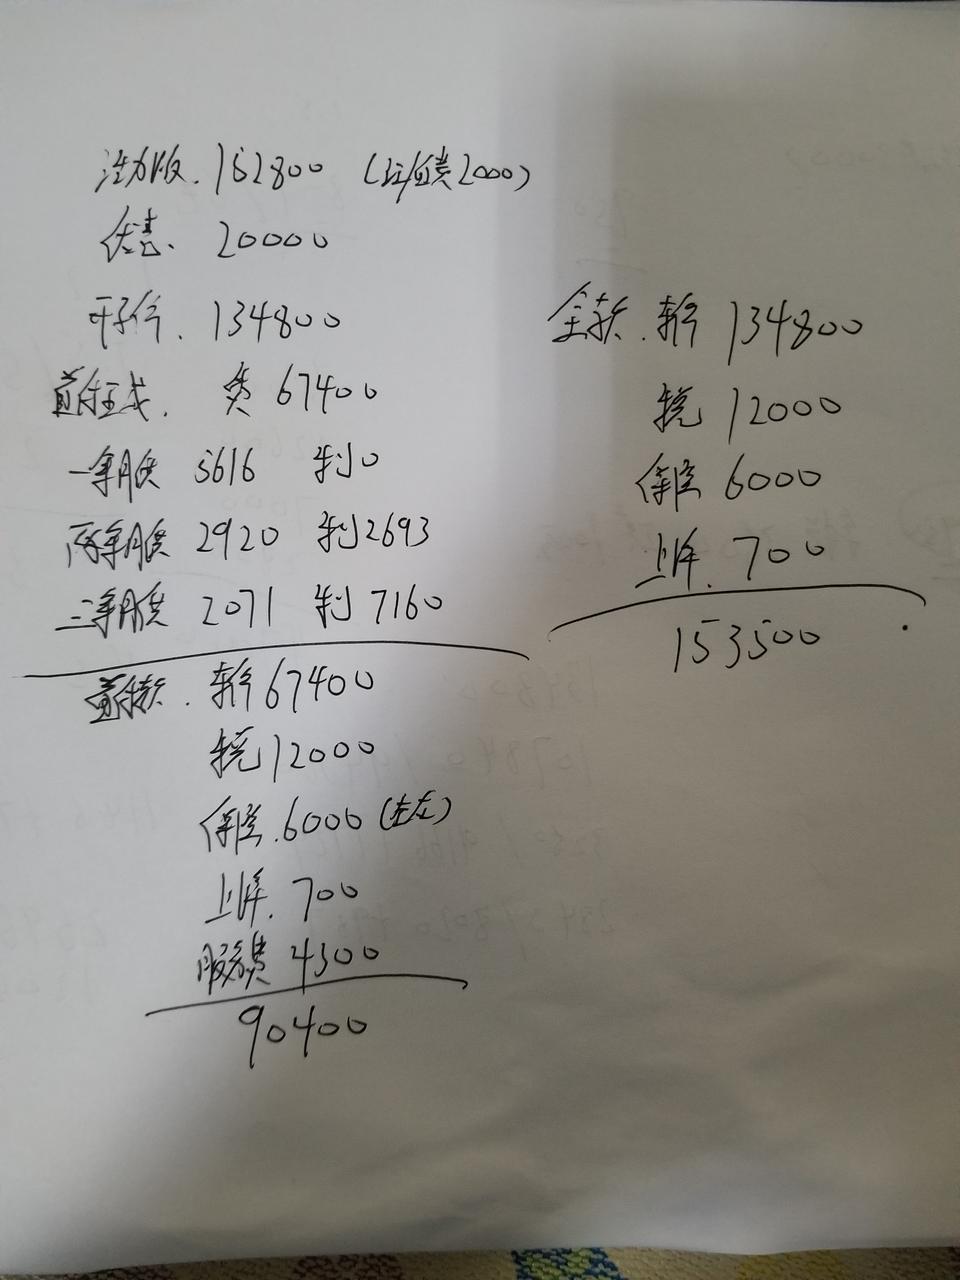 活力版. 152800 (运输费2000)
优惠. 20000
开票价. 134800
首付五成. 贷 67400
一年月供 5616 利0
两年月供 2920 利2693
三年月供 2071 利 7160
首付款. 车价 67400
税 12000
保险. 6000 (左右)
上牌. 700
服务费 4300
90400
全款. 车价 134800
税 12000
保险 6000
上牌. 700
153500